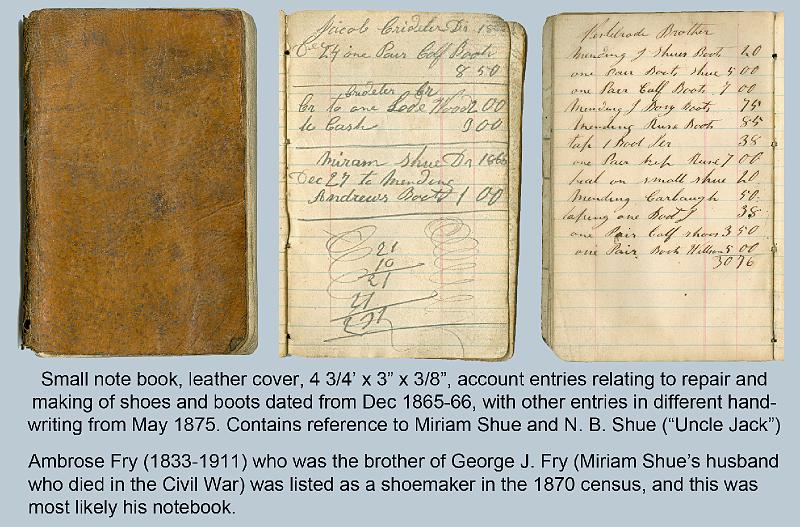 Jacob Crideler Dr 18
Dec 24 one Pair Calf Boots
8 50
Crideler Cr
Cr to one Lode Wood 2 00
to Cash 3 00
Miram Shue Dr 1865
Dec 27 to Mending
Andrews Boots 1 00
21
10
21
21
231
Brother
Mending J Shues Boots 20
one Pair Boots Shue 5 00
one Pair Calf Boots 7 00
Mending J Bory Boots 75
Mending Boots 85
tap 1 Boot 38
one Pair Kip 7 00
heal on small shue 20
Mending Carbaugh 50
taping one Boot J 38
one Pair Calf shoes 3 50
one Pair Boots Willson 5 00
30 76
Small note book, leather cover, 4 3/4’ x 3” x 3/8”, account entries relating to repair and
making of shoes and boots dated from Dec 1865-66, with other entries in different hand-
writing from May 1875. Contains reference to Miriam Shue and N. B. Shue (“Uncle Jack”)
Ambrose Fry (1833-1911) who was the brother of George J. Fry (Miriam Shue’s husband
who died in the Civil War) was listed as a shoemaker in the 1870 census, and this was
most likely his notebook.